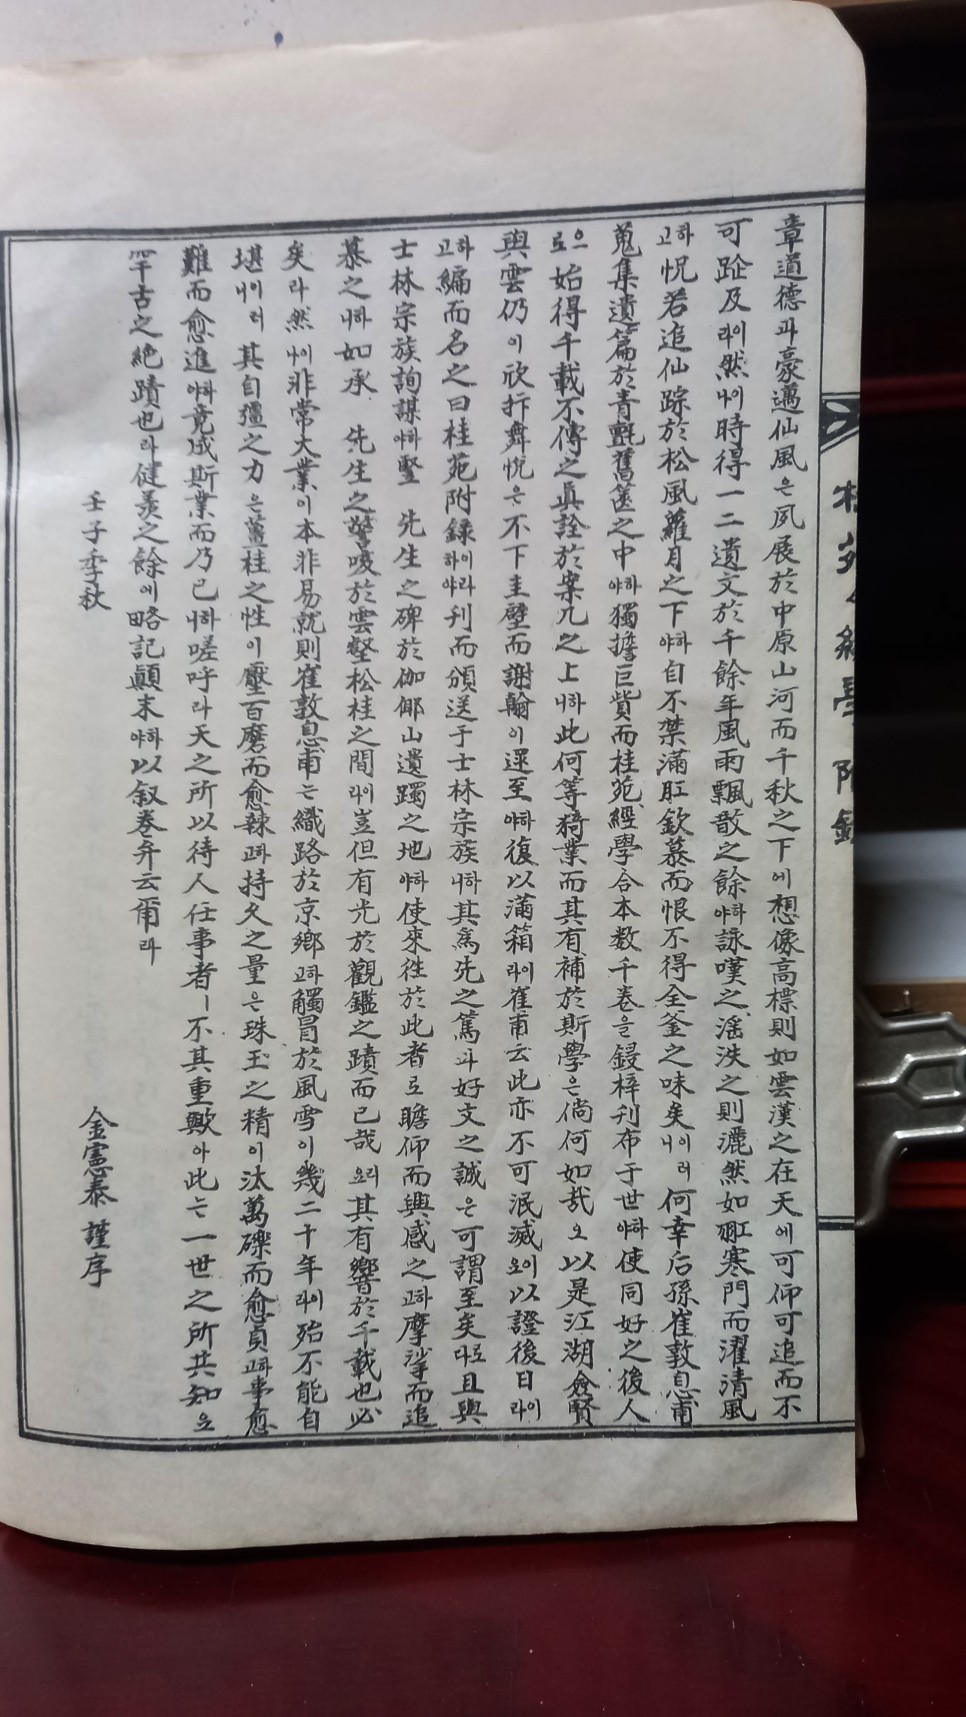 章道德과豪邁仙風은夙展於中原山河而千秋之下에想像高標則如雲漢之在天에可仰可追而不
可趾及이라然이나時得一二遺文於千餘年風雨飄散之餘하야詠嘆之滛泆之則灑然如 寒門而濯淸風
하고怳若追仙踪於松風蘿月之下하야自不禁滿肛欽慕而恨不得全釜之味矣이러니何幸后孫崔敦息甫
蒐集遺篇於靑氈舊篋之中하야獨擔巨貲而桂苑經學合本數千卷을鋟梓刊布于世하야使同好之後人
으로始得千載不傳之眞詮於案几之上하니此何等猗業而其有補於斯學은倘何如哉오以是江湖僉賢
與雲仍이欣抃舞悅은不下圭璧而謝翰이還至하야復以滿箱이라崔甫云此亦不可泯滅이오以證後日이라
하고編而名之曰桂苑附録이라하야刊而頒送于士林宗族하니其爲先之篤과好文之誠은可謂至矣로다且與
士林宗族詢謀하야竪 先生之碑於伽倻山遺躅之地하야使來往於此者로瞻仰而興感之하고摩挲而追
慕之하니如承 先生之謦唆於雲壑松桂之間이라豈但有光於觀鑑之蹟而已哉리오其有響於千載也必
矣라然이나非常大業이本非易就則崔敦息甫는織路於京鄕하고觸冒於風雪이幾二十年이라殆不能自
堪이러니其自彊之力은薑桂之性이壓百磨而愈辣하고持久之量은珠玉之精이汰萬礫而愈貟하고事愈
難而愈進하야竟成斯業而乃已하니嗟呼라天之所以待人任事者ㅣ不其重歟아此는一世之所共知오
罕古之絶蹟也라健羨之餘에略記顚末하야以叙卷弁云爾라
壬子季秋 金憲泰謹序